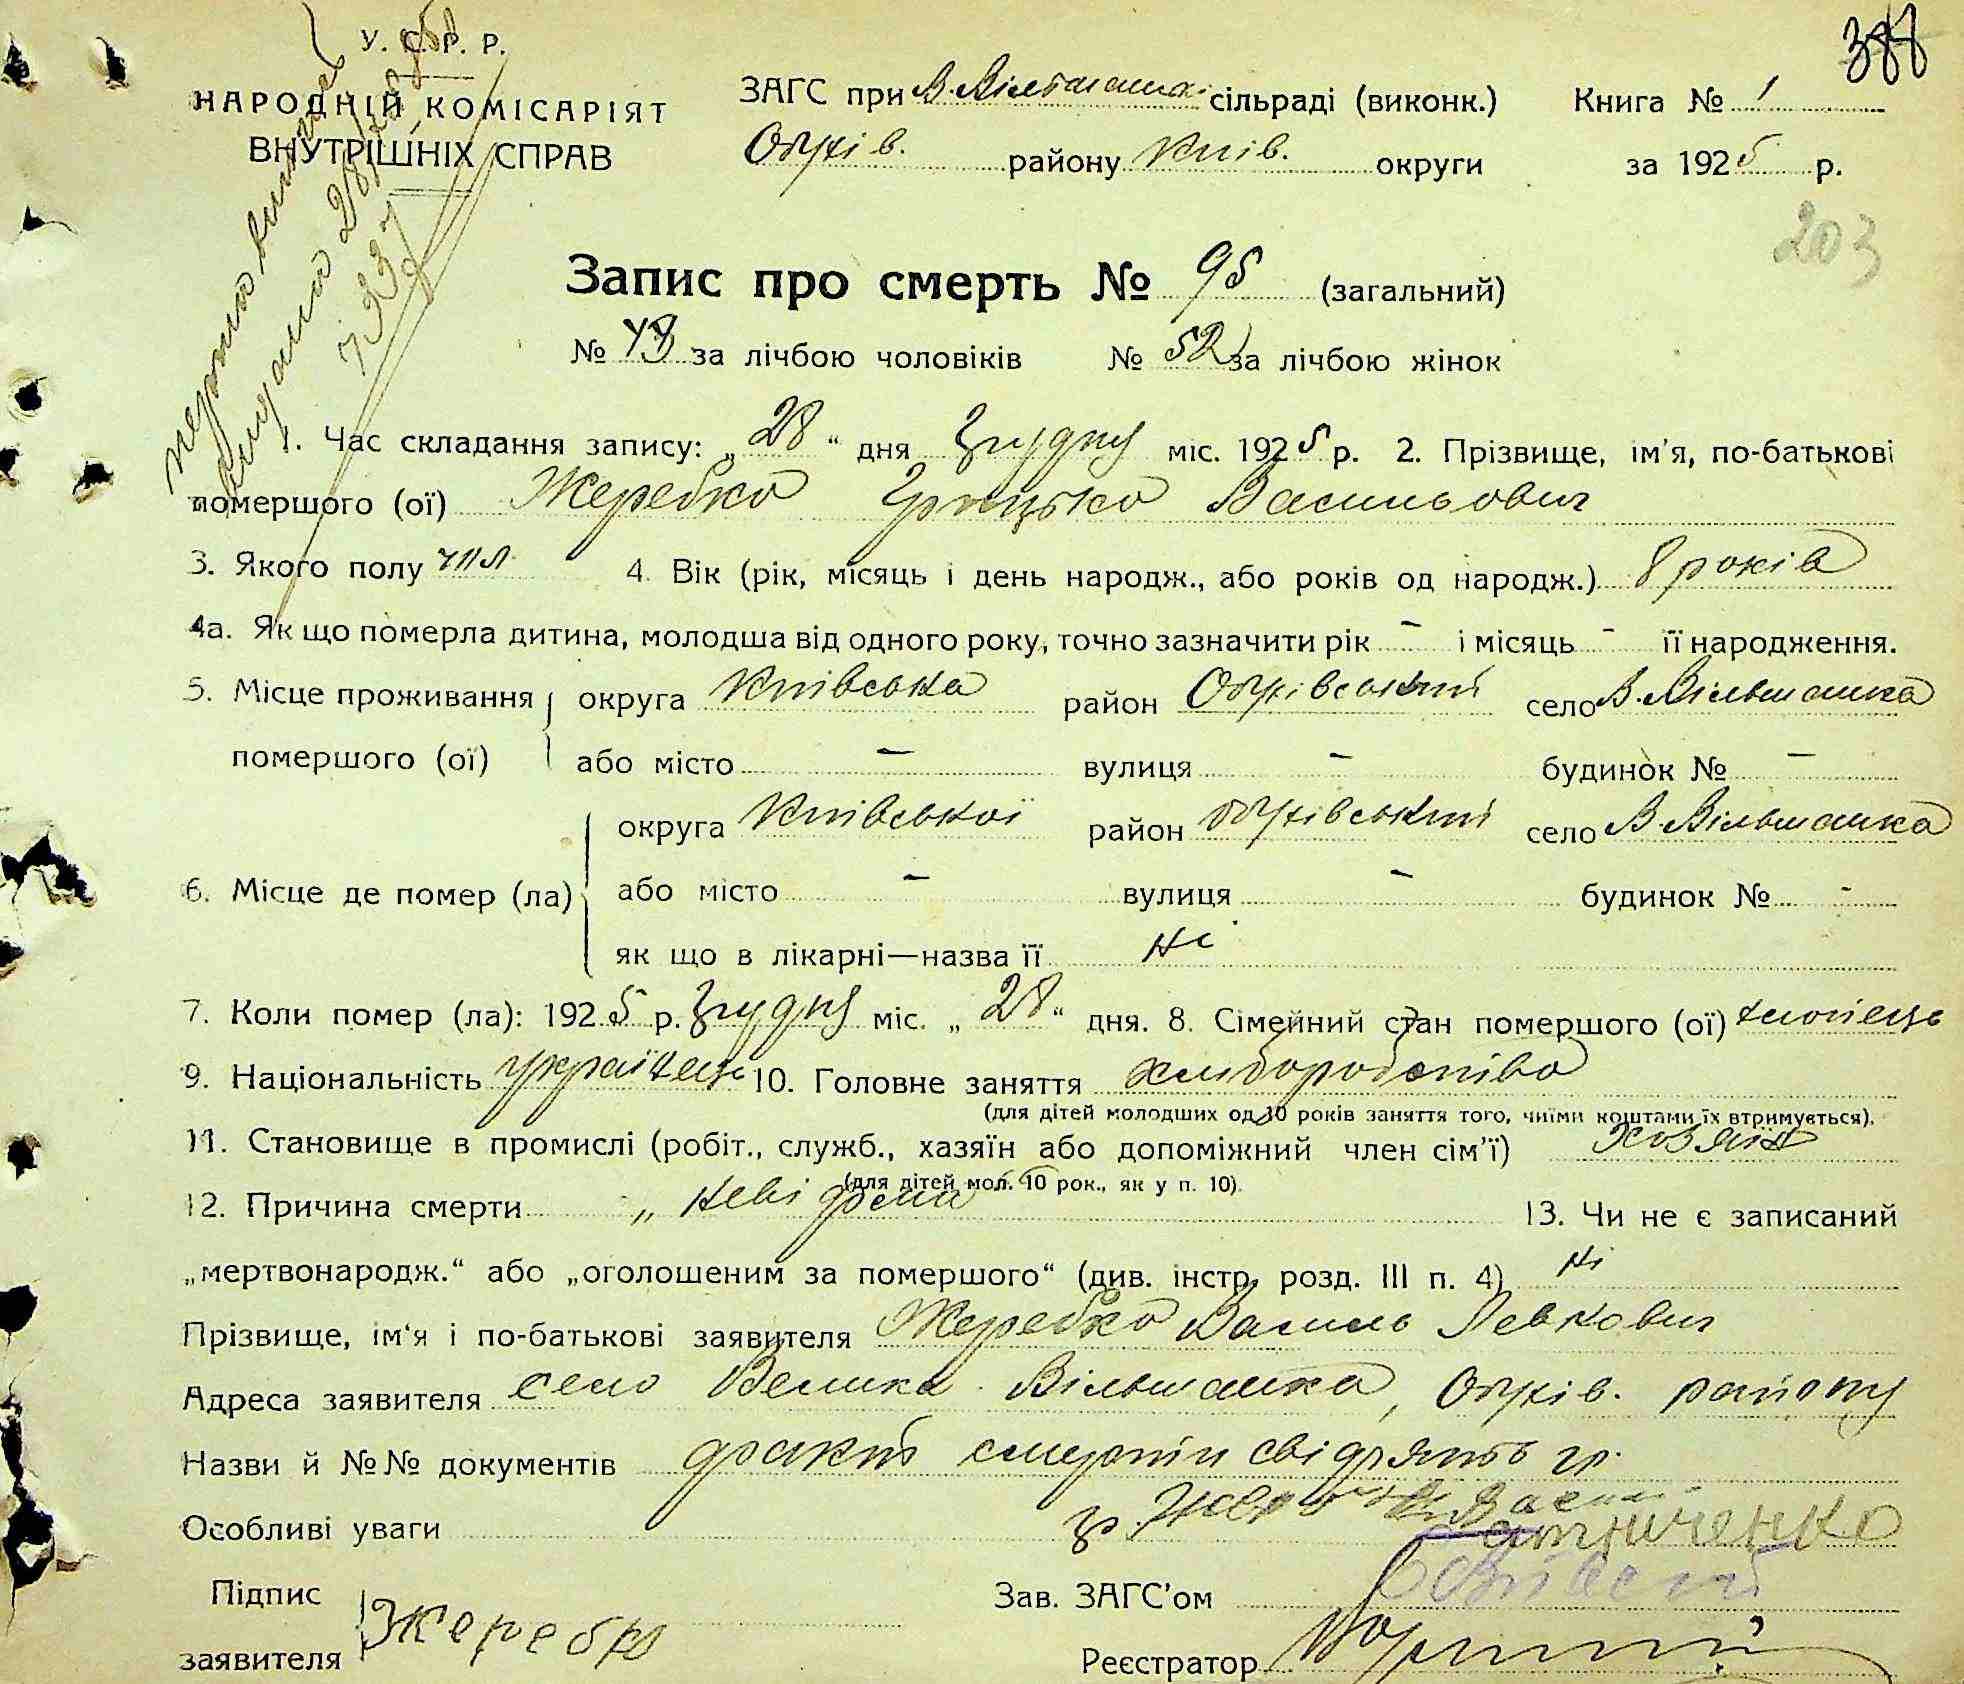 388
У. С. Р. Р.
НАРОДНІЙ КОМІСАРІЯТ
ВНУТРІШНІХ СПРАВ
ЗАГС при В. Вільшанка сільраді (виконк.) Книга № 1
Обухів. району Київ. округи за 1925 р.
203
Запис про смерть № 95 (загальний)
№ 43 за лічбою чоловіків № 52 за лічбою жінок
1. Час складання запису: „28“ дня грудня міс. 1925 р. 2. Прізвище, ім'я, по-батькові
помершого (ої) Жеребко Грицько Васильович
3. Якого полу чол 4. Вік (рік, місяць і день народж., або років од народж.) 8 років
4а. Як що померла дитина, молодша від одного року, точно зазначити рік – і місяць – її народження.
5. Місце проживання помершого (ої) округа Київська район Обухівський село В. Вільшанка
або місто – вулиця – будинок № –
6. Місце де помер (ла) округа Київської район Обухівський село В. Вільшанка
або місто – вулиця – будинок № -
як що в лікарні—назва її ні
7. Коли помер (ла): 1925 р. грудня міс. „28“ дня. 8. Сімейний стан помершого (ої) хлопець
9. Національність українець 10. Головне заняття хліборобство
(для дітей молодших од 10 років заняття того, чиїми коштами їх втримується).
11. Становище в промислі (робіт., служб., хазяїн або допоміжний член сім'ї) хозяїн
(для дітей мол. 10 рок., як у п. 10).
12. Причина смерти „ невідома 13. Чи не є записаний
„мертвонародж.“ або „оголошеним за помершого“ (див. інстр. розд. III п. 4) ні
Прізвище, ім'я і по-батькові заявителя Жеребко Василь Левкович
Адреса заявителя село Велика Вільшанка, Обухів. району
Назви й №№ документів факт смерти свідчать гр.
Особливі уваги гр.
Підпис заявителя Жеребко
Зав. ЗАГС'ом
Реєстратор